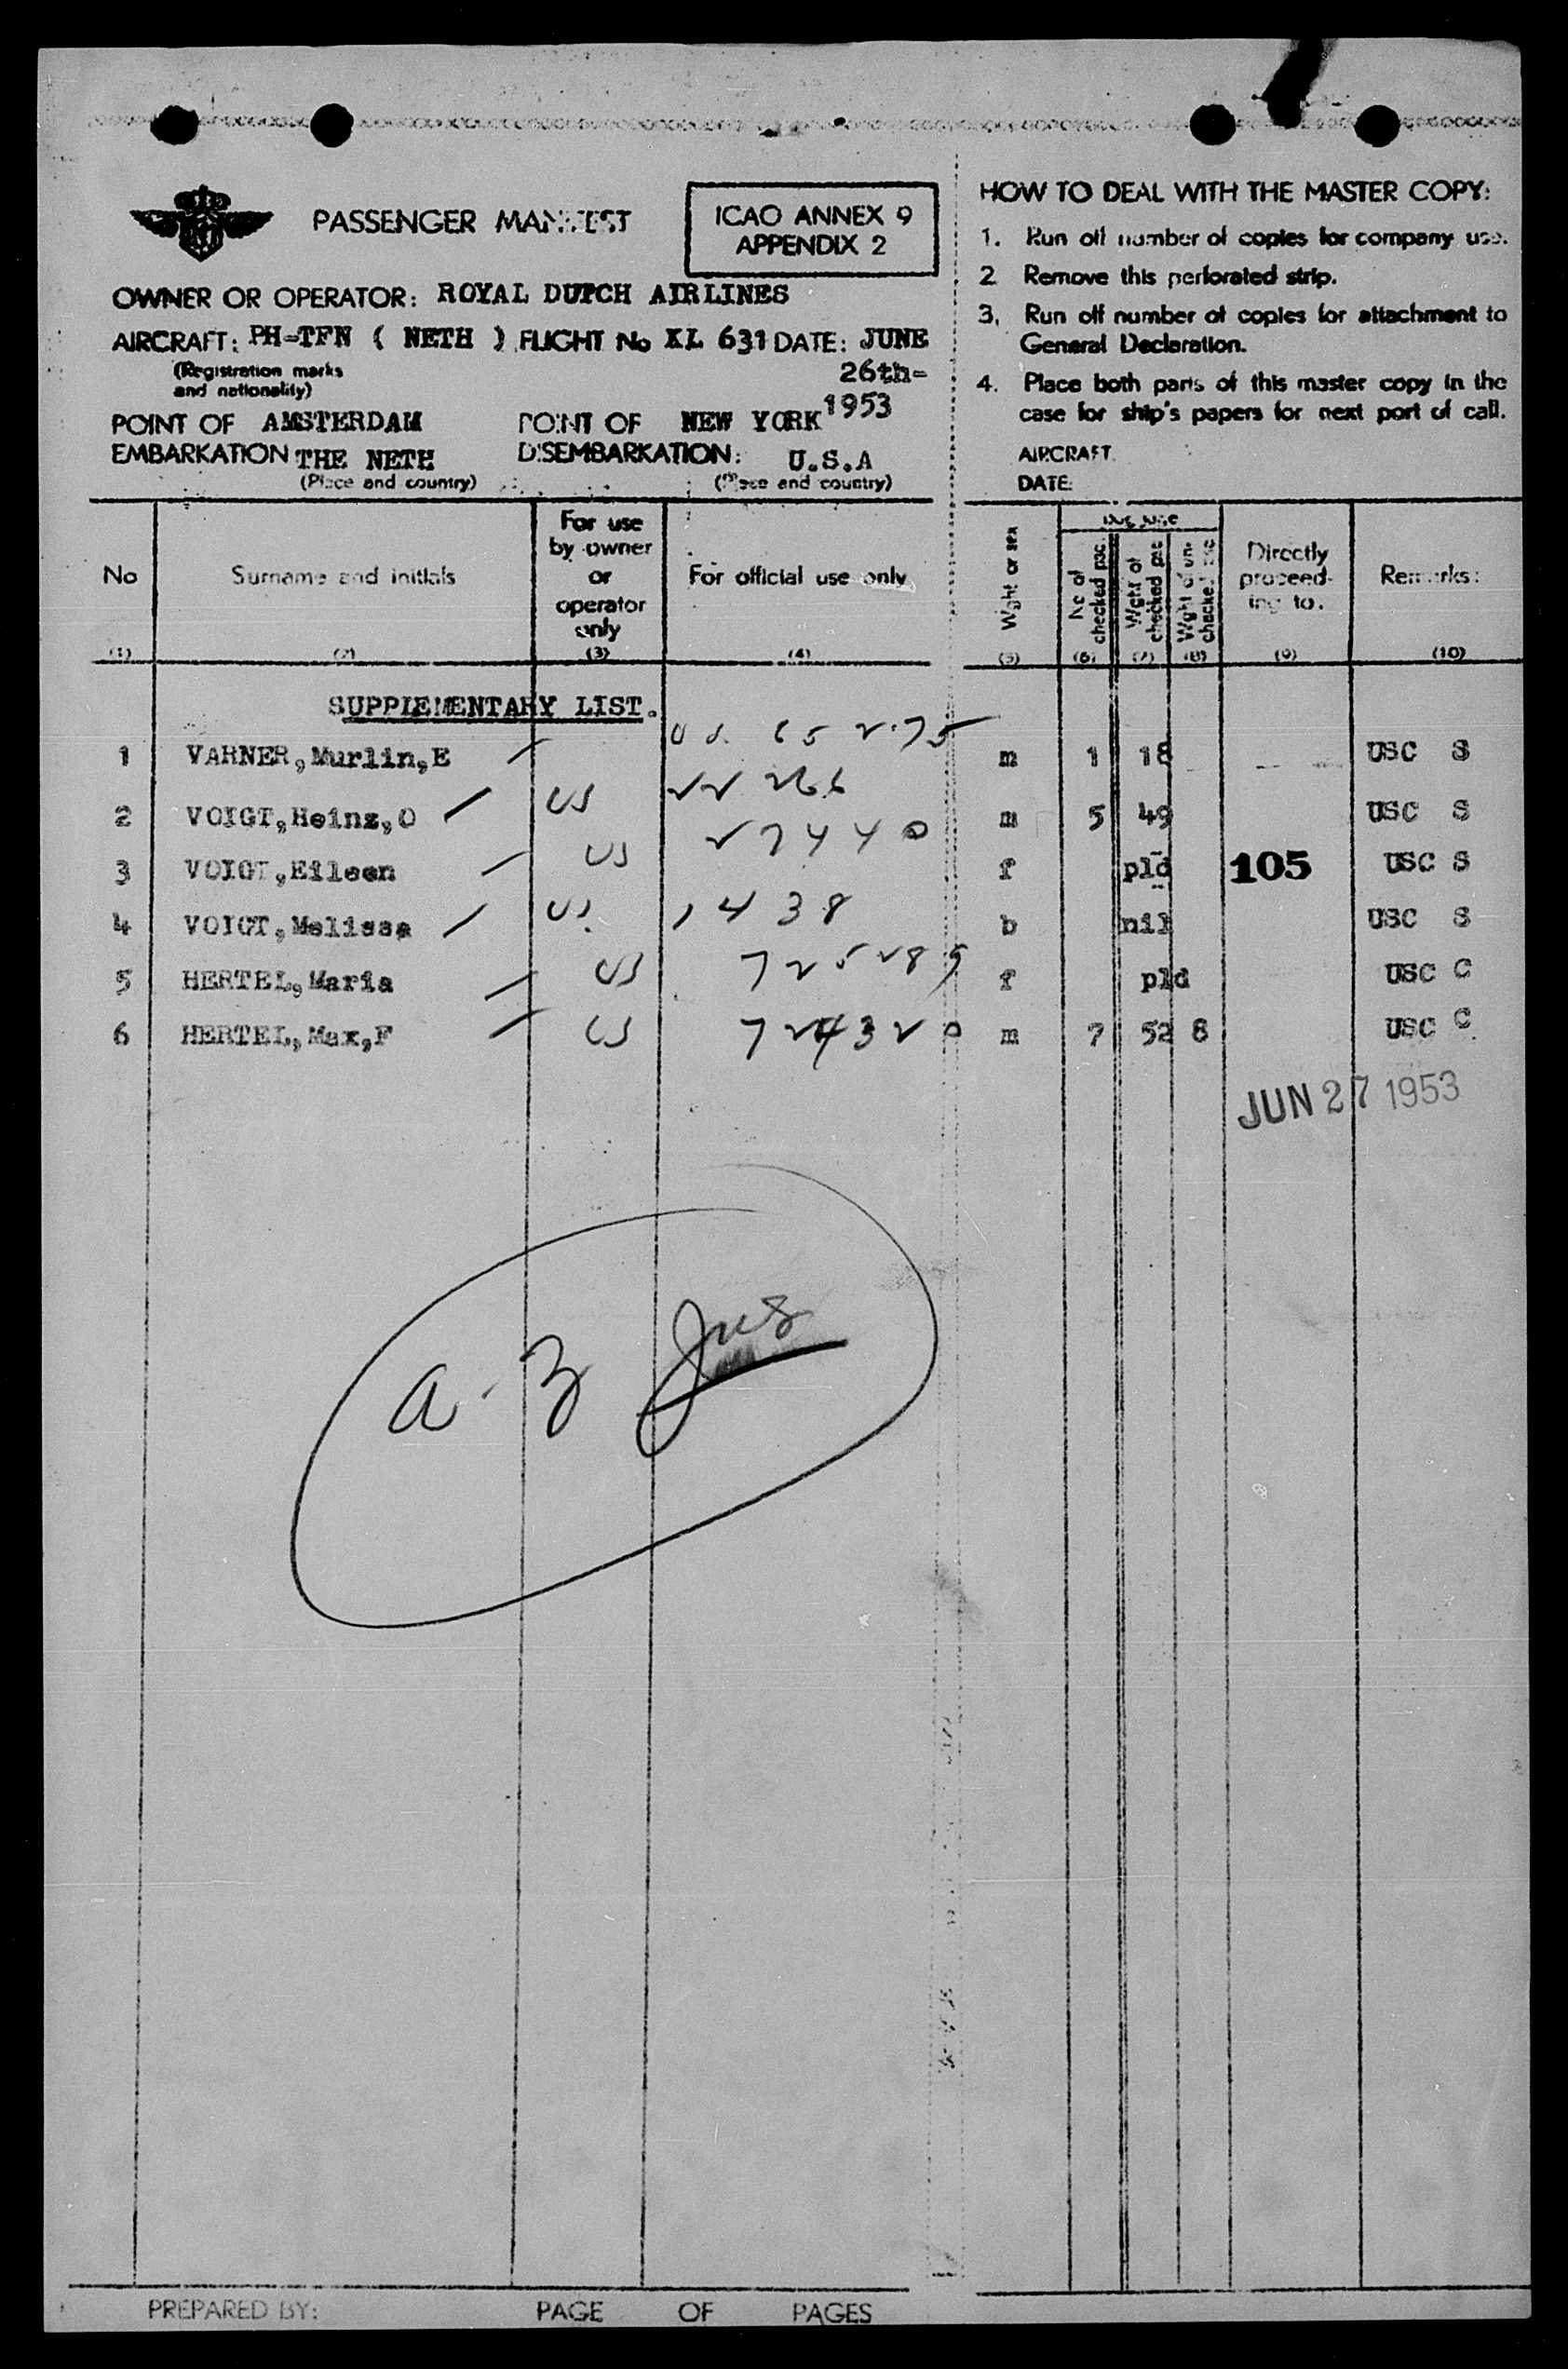 PASSENGER MANIFEST
ICAO ANNEX 9
APPENDIX 2
OWNER OR OPERATOR: ROYAL DUTCH AIRLINES
AIRCRAFT: PH-TFN ( NETH ) FLIGHT No KL 631 DATE: JUNE
(Registration marks
and nationality)
26th-
1953
POINT OF AMSTERDAM POINT OF NEW YORK
EMBARKATION THE NETH DISEMBARKATION: U.S.A
(Place and country) (Place and country)
HOW TO DEAL WITH THE MASTER COPY:
1. Run off number of copies for company use.
2 Remove this perforated strip.
3, Run off number of copies for attachment to
General Declaration.
4. Place both parts of this master copy in the
case for ship's papers for next port of call.
AIRCRAFT.
DATE:
No
(1)
Surname and initials
(2)
For use
by owner
or
operator
only
(3)
For official use only
(4)
Wght or sex
(5)
No of
checked pac.
(6)
Wght of
checked pac
(7)
(8)
Directly
proceed-
ing to.
(9)
Remarks:
(10)
SUPPLEMENTARY LIST.
1 VARNER,Murlin,E m 1 18 USC S
2 VOIGT,Heinz,O US m 5 49 USC S
3 VOIGT,Eileen US 27440 f pld 105 USC S
4 VOIGT,Melissa US 1438 b nil USC S
5 HERTEL,Maria US f pld USC C
6 HERTEL,Max,F US 724320 m 7 52 8 USC C
JUN 27 1953
a-3
PREPARED BY: PAGE OF PAGES